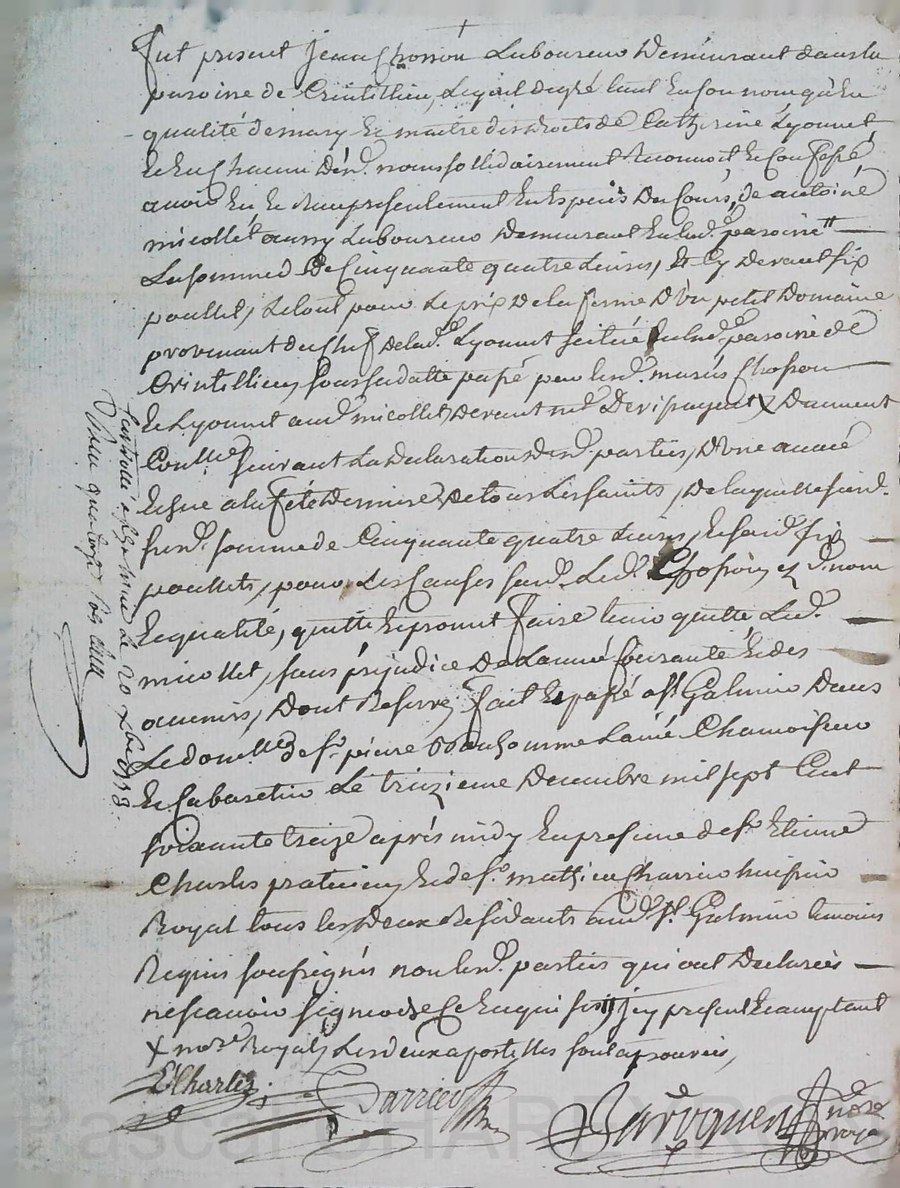 Fut présent Jean Chosson Laboureur Demeurant dans la
paroisse de Crintillieu, Lequel degré tant en son nom qu'en
qualité de mary Et maître des droits de Catherine Lyonnet
Et En Chacun désd. noms sollidairement Reconnoit Et Confesse
avoir Eu Et Reçu présentement En Espèces Du Cours, de antoine
micollet aussy Laboureur Demeurant En lad. paroisse
La somme De Cinquante quatre Livres, Et Cy devant six
poullets, Le tout pour Le prix De la ferme D'un petit Domaine
provenant du Chef de lad. Lyonnet scitué En lad. paroisse de
Crintillieu, sous sa datte passé par lesd. mariés Chosson
Et Lyonnet aud. micollet, devant me Derispagent x Dument
Conllé Suivant La declaration desd. parties, D'une année
Echue a la Fête Derniere De tous Les saints, De laquelle susd.
susd. somme de Cinquante quatre Livres, Et susd. six
poullets, pour Les Causes susd. Led. Chosson, Esd. nom
Et qualité, quitte Et promet Faire tenir quitte Led.
micollet, sans préjudice De L'année Courante Et des
avenirs, Dont Reserve, Fait Et passé a St Galmier Dans
Le domlle de sr. pierre Bonhomme L'ainé Chamoiseur
Et Cabaretier Le treizieme Decembre mil sept Cent
soixante treize après midy En presence de sr. Etienne
Charles praticien, Et de sr. mathieu Charrier huissier
Royal tous les Deux Residants aud. St Galmier temoins
Requis soussignés non lesd. parties qui ont Declarées
ne scavoir signer de Ce Enquis present Et acceptant
x nore. Royal, Les deux apostilles sont aprouvées,
Controllé a St Galmier Le 20 xbre 1773.
Reçu quatorze sols
E Charles
nore
royal